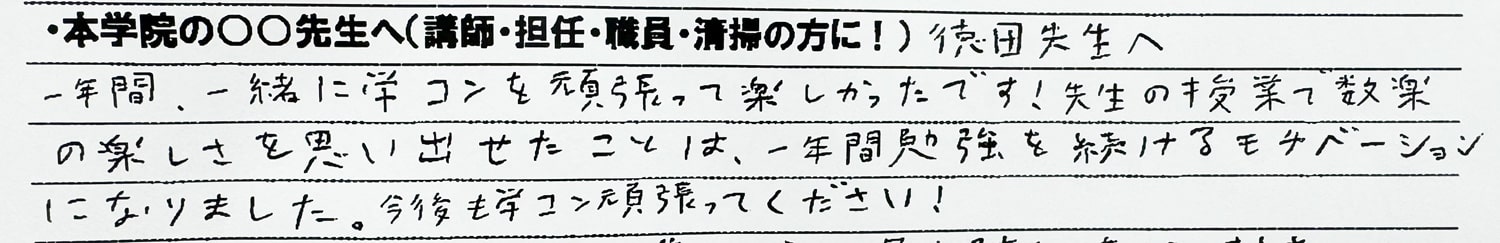 ・本学院の〇〇先生へ(講師・担任・職員・清掃の方に！) 徳田先生へ
一年間、一緒に学コンを頑張って楽しかったです！先生の授業で数楽
の楽しさを思い出せたことは、一年間勉強を続けるモチベーション
になりました。今後も学コン頑張ってください！